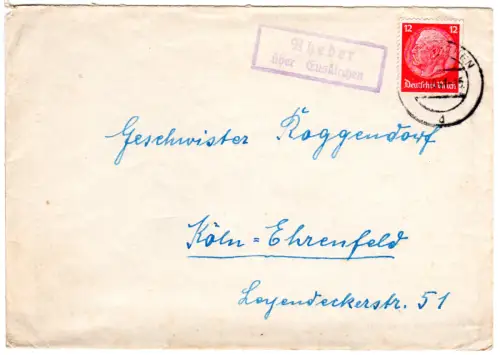 Rheder
über Euskirchen
12 12
Deutsches Reich
Geschwister Roggendorf
Köln=Ehrenfeld
Leyendeckerstr. 51